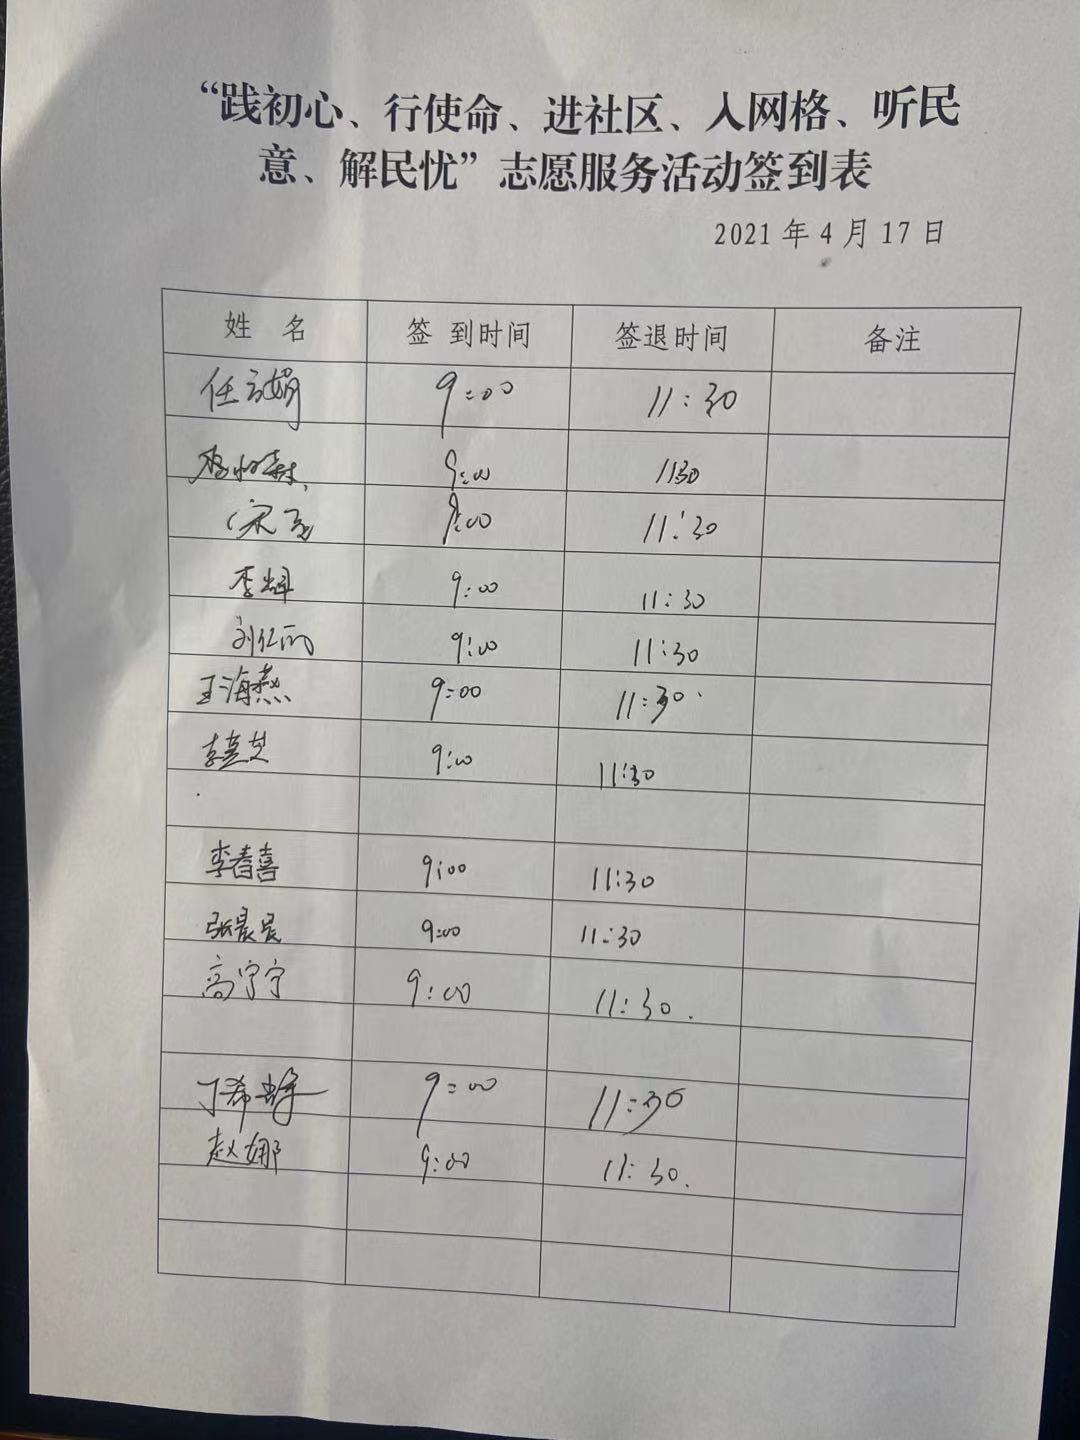 “践初心、行使命、进社区、入网格、听民
意、解民忧”志愿服务活动签到表
2021年4月17日
姓 名 签 到时间 签退时间 备注
任 9:00 11:30
李 9:00 1130
宋 9:00 11:30
李辉 9:00 11:30
刘仁 9:00 11:30
王海燕 9:00 11:30
李 9:00 11:30
李春喜 9:00 11:30
张晨晨 9:00 11:30
高宁宁 9:00 11:30.
丁希 9:00 11:30
赵娜 9:00 11:30.